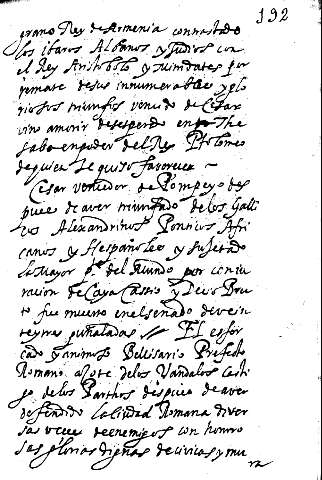 192
grano Rey de Armenia contrastado
los ibaros Albanos y Judios con
el Rey Aristobolo y mitridates por
rymate de sus innumerables y glo
riosos triunfos vencido de Cesar
vino a morir desesperdo en The
salia en poder del Rey Ptolomeo
de quien se quiso favorecer ~
Cesar vencedor de Pompeyo des
pues de aver triunfado de los Galli
cos Alexandrinos Ponticos Afri
canos y Hespañoles y sujetado
la Mayor pe del Mundo por conju
racion de Caya Cassio y Decio Bru
to fue muerto en el senado de vein
te y tres puñaladas // El esfor
cado y animoso Bellisario Prefecto
Romano açote de los Vandalos casti
go de los Parthos despues de aver
defendido la ciudad Romana diver
sas veces de enemigos con honrro
sas glorias dignas de civicas y mu
ra